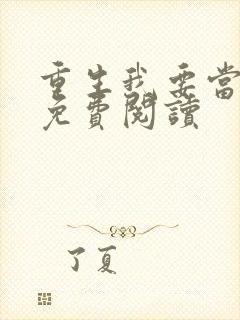 重生我要當
免費閱讀
了夏